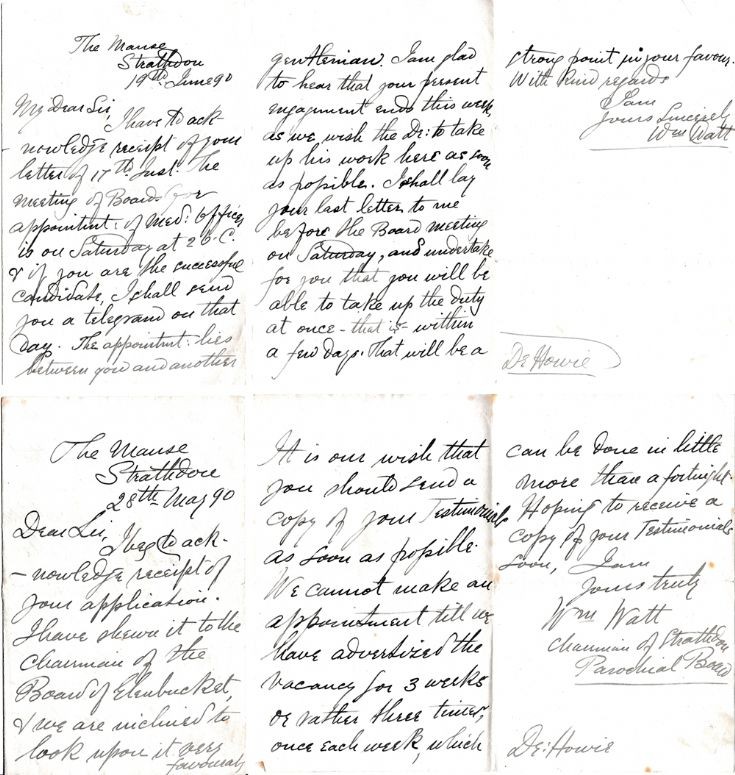 The Manse
Strathdon
19th June 90
My dear Sir,
I have to ack
-nowledge receipt of your
letter of 17th Inst. The
meeting of Board for
appointmt: of Med: Officer
is on Saturday at
& if you are the successful
candidate, I shall send
you a telegram on that
day. The appointmt: lies
between you and another
gentleman. I am glad
to hear that your present
engagement ends this week,
as we wish the Dr: to take
up his work here as soon
as possible. I shall lay
your last letter to me
before the Board meeting
on Saturday, and undertake
for you that you will be
able to take up the duty
at once - that is - within
a few days. That will be a
strong point in your favour.
With kind regards
I am
Yours Sincerely
Wm Watt
Dr Howie
The Manse
Strathdon
28th May 90
Dear Sir,
I beg to ack-
-nowledge receipt of
your application.
I have shewn it to the
Chairman of the
Board of Glenbucket,
& we are inclined to
look upon it very
favourably
It is our wish that
you should send a
copy of your Testimonials
as soon as possible.
We cannot make an
appointment till we
have advertized the
vacancy for 3 weeks
or rather three times,
once each week, which
can be done in little
more than a fortnight.
Hoping to receive a
copy of your Testimonials
soon, I am
Yours truly
Wm Watt
Chairman of Strathdon
Parochial Board
Dr: Howie